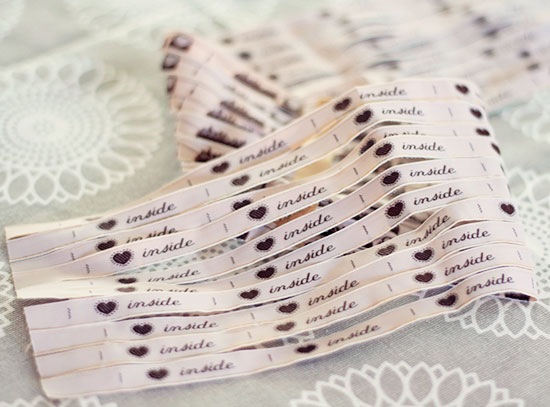 inside
inside
inside inside
inside inside
inside inside
inside inside
inside inside
inside inside inside
inside inside inside
inside inside
inside inside
inside inside
inside inside